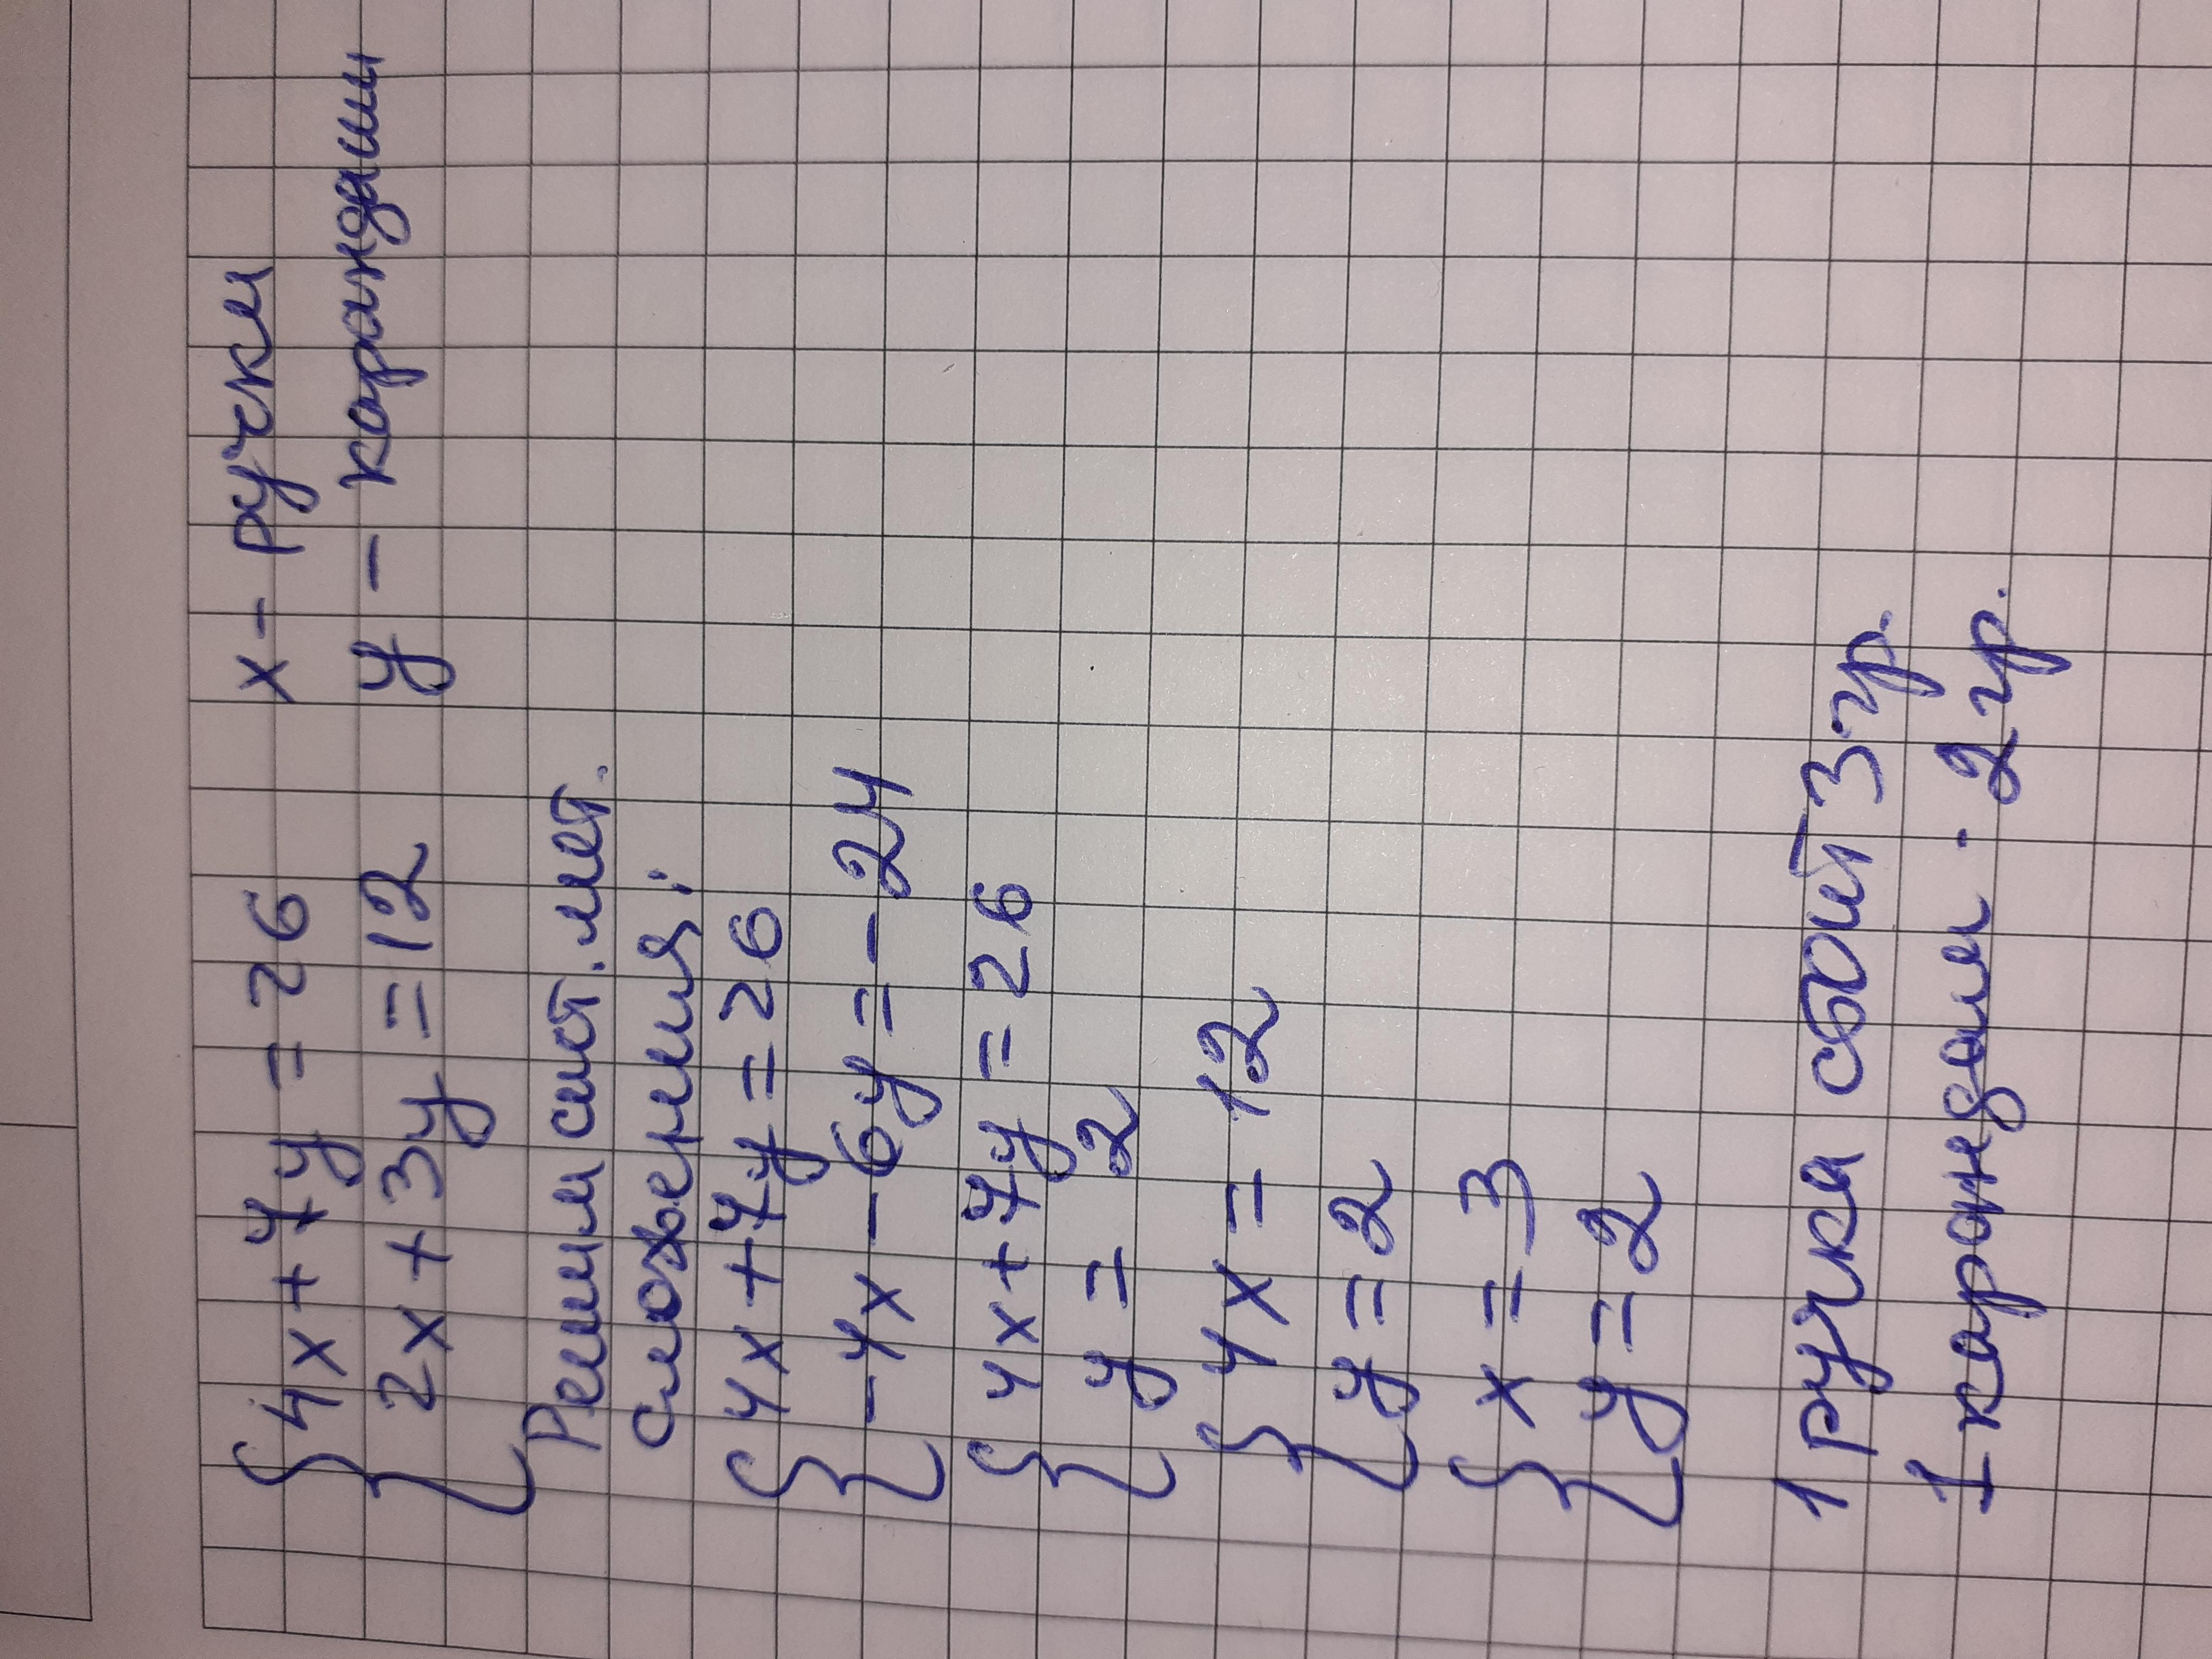 4x + 7y = 26 x - ручки
2x + 3y = 12 y - корандаши
Решим сист. мет.
сложения:
4x + 7y = 26
-4x - 6y = -24
4x + 7y = 26
y = 2
4x = 12
y = 2
x = 3
y = 2
1 ручка стоит 3 гр.
1 карандаш - 2 гр.